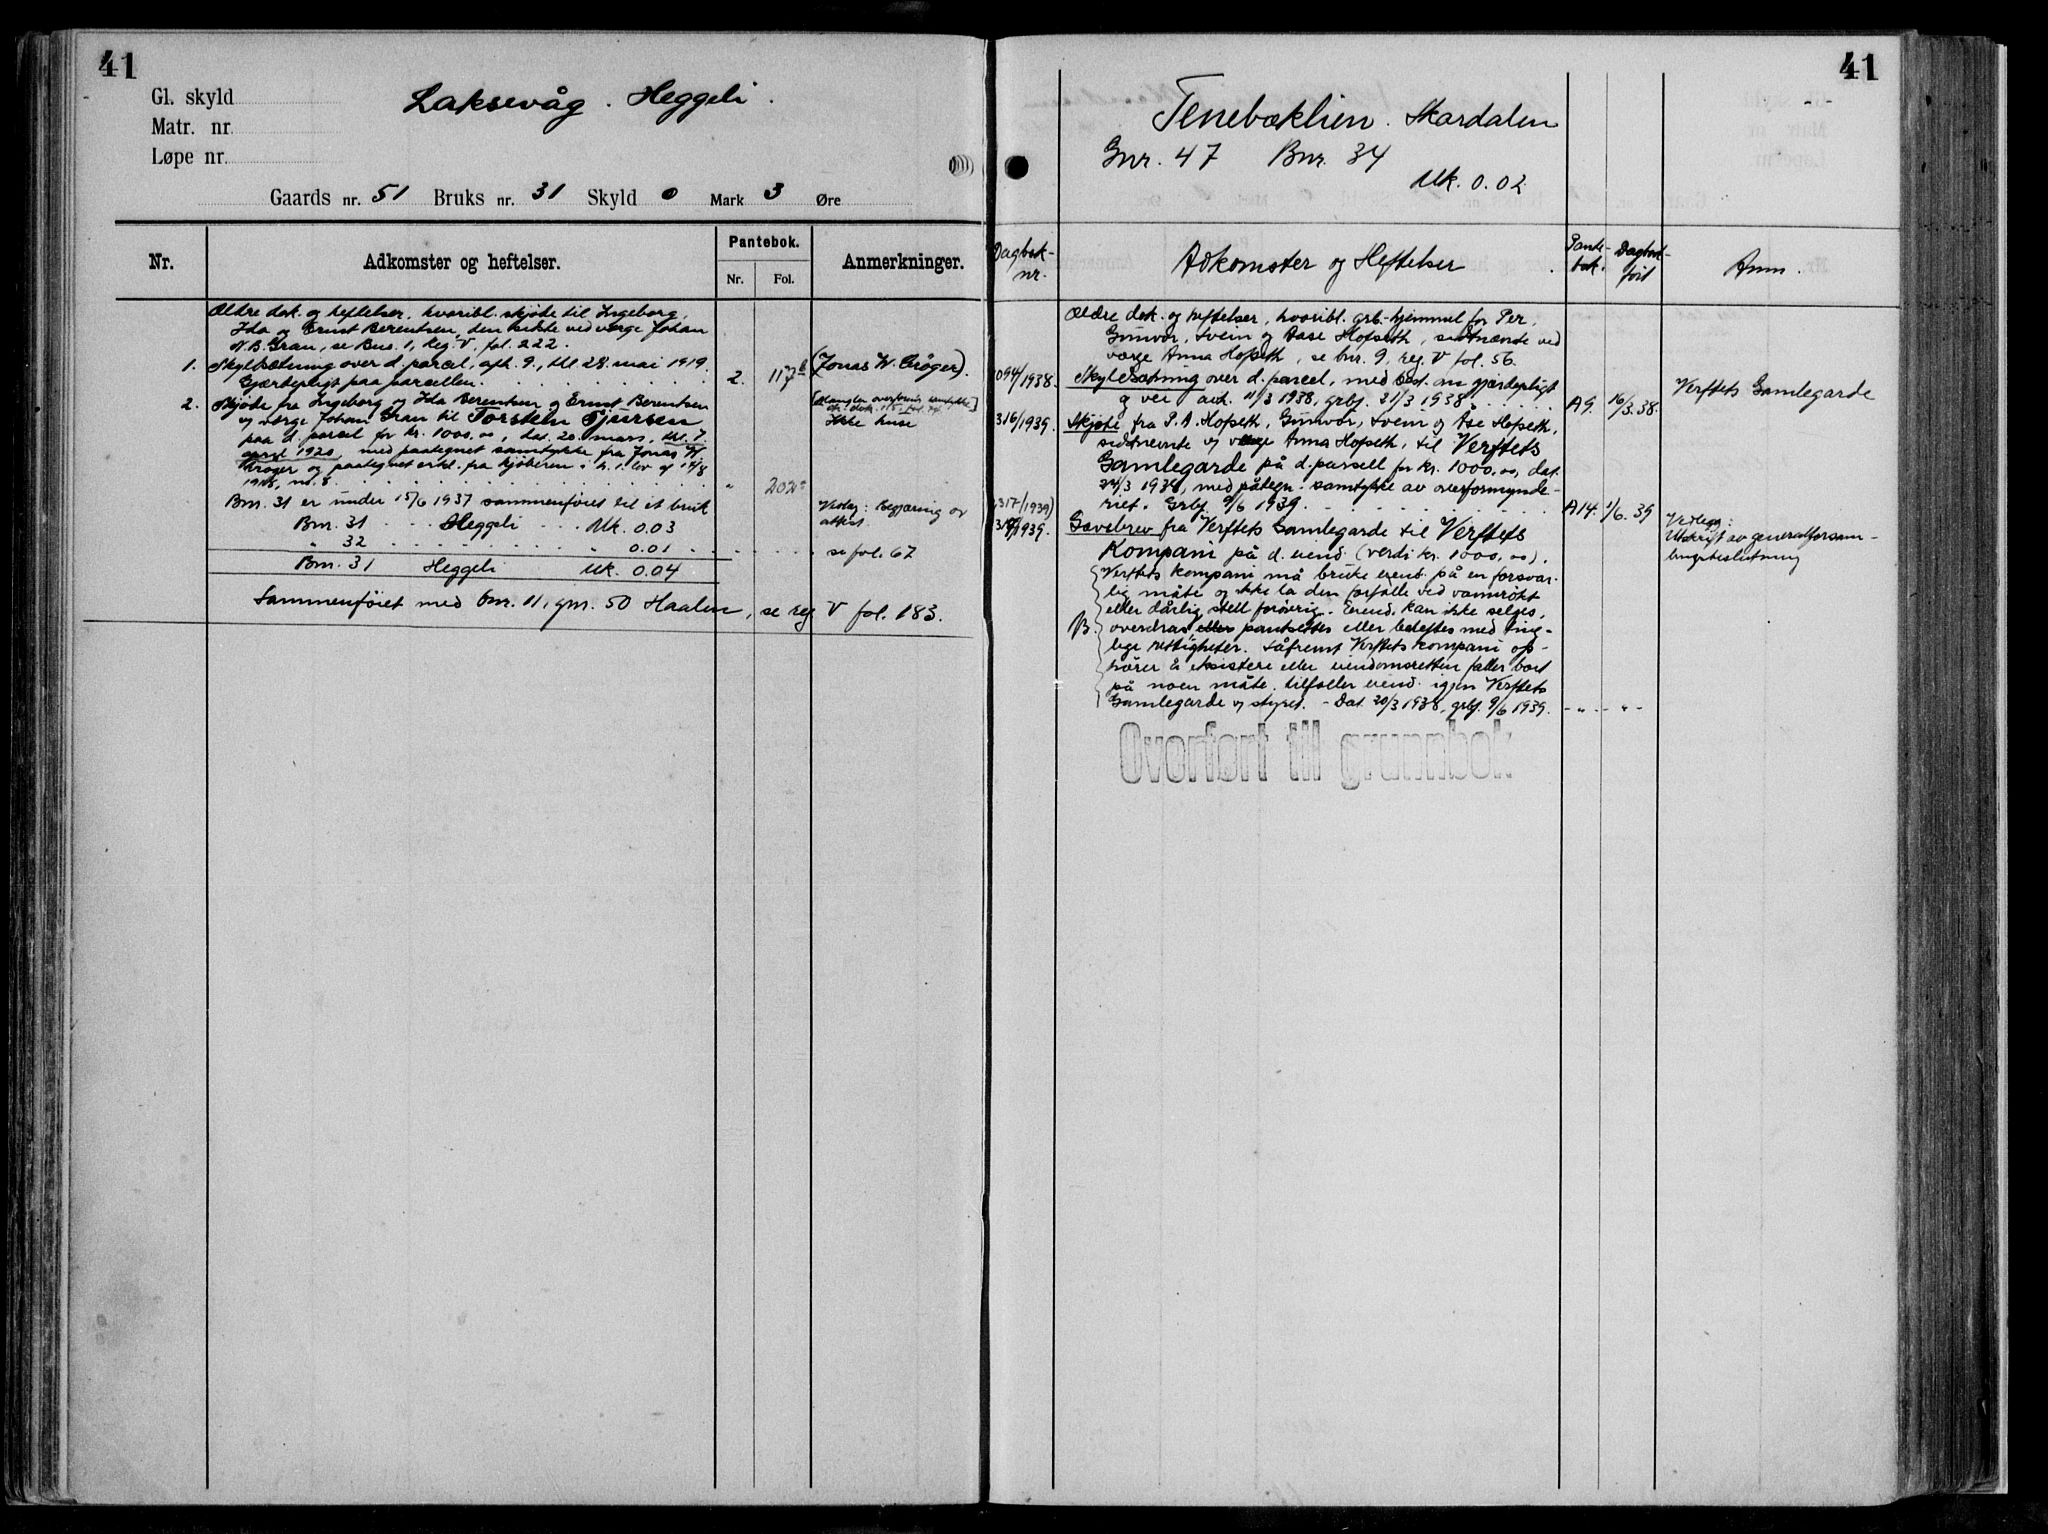 41
Gl. skyld
Matr. nr.
Løpe nr.
Laksevåg. Heggeli.
Gaards nr. 51 Bruks nr. 31 Skyld 0 Mark 3 Øre
Nr.
Adkomster og heftelser.
Pantebok.
Nr. Fol.
Anmerkninger.
Ældre dok. og heftelser, hvoribl. skjøde til Ingeborg,
Ida og Ernst Berentsen, den sidste ved værge Johan
N. B. Gran, se Bno. 1, Reg. V, fol. 222.
1. Skyldsætning over d. parcel, afh. 9., thl. 28. mai 1919.
Gjærdepligt paa parcellen. 2. 117b (Jonas W. Crøger).
2. Skjøde fra Ingeborg og Ida Berentsen og Ernst Berentsen
og værge Johan Gran til Torstein Sjursen
paa d. parcel for kr. 1000.00, dat. 20. mars, thl. 7.
april 1920, med paategnet samtykke fra Jonas W.
Crøger og paategnet erkl. fra kjøberen i h. t. lov af 14/8
1918, no. 3. " 202a
Ikke huse
Bnr. 31 er under 15/6 1937 sammenføiet til et bruk
Vedlag: Begjæring og
attest.
Bnr. 31 Heggeli Mk. 0.03
" 32 " 0.01 se fol. 67
Bnr. 31 Heggeli Mk. 0.04
Sammenføiet med bnr. 11, gnr. 50 Haalen, se reg V fol. 183.
41
Tenebæklien. Skardalen
Gnr. 47 Bnr. 34
Mk. 0.02
Dagbok-
nr.
Adkomster og Heftelser
Pante-
bok.
Dagbok-
ført
Anm.
Ældre dok. og heftelser, hvoribl. grb. hjemmel for Per,
Gunvor, Svein og Aase Hofseth, sidstnævnte ved
værge Anna Hofseth, se bnr. 9, reg. V fol. 56.
1094/1938. Skyldsætning over d. parcel, med best. om gjærdepligt
og vei avh. 11/3 1938, grbf. 21/3 1938 A9. 16/3.38.
Verftets Gamlegarde
316/1939. Skjøte fra P. A. Hofseth, Gunvor, Svein og Åse Hofseth,
sidstnevnte v/ verge Anna Hofseth, til Verftets
Gamlegarde på d. parsell for kr. 1000.00, dat.
24/3 1938, med påtegn. samtykke av overformynde-
riet. Grbf. 9/6 1939. A14. 1/6. 39
317/1939)
1939. Gavebrev fra Verftets Gamlegarde til Verftets
Kompani på d. eiend. (verdi kr. 1000.00).
Vedlegg:
Utskrift av generalforsam-
lingsbeslutning
Verftets kompani må bruke eiend. på en forsvar-
lig måte og ikke la den forfalle ved vannrøkt
eller dårlig stell forøvrig. Eiend. kan ikke selges,
B. overdras eller pantsettes eller beheftes med ting-
lige rettigheter. Såfremt Verftets kompani op-
hører å eksistere eller eiendomsretten faller bort
på noen måte, tilfaller eiend. igjen Verftets
Gamlegarde v/ styret. - Dat. 20/3 1938, grbf. 9/6 1939. - " - - " -
Overført til grunnbok